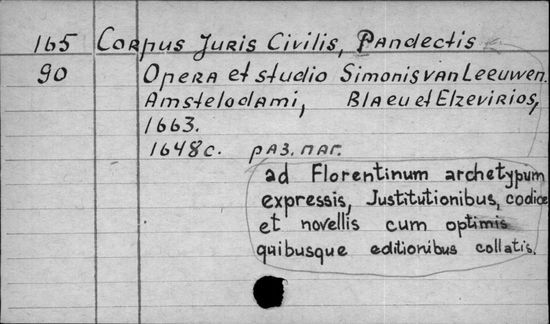 165 Corpus Juris Civilis, Pandectis
90 Opera et studio Simonis van Leeuwen.
Amstelodami, Blaeu et Elzevirios,
1663.
1648 с. раз. паг.
ad Florentinum archetypum
expressis, Justitutionibus, codice
et novellis cum optimis
quibusque editionibus collatis.